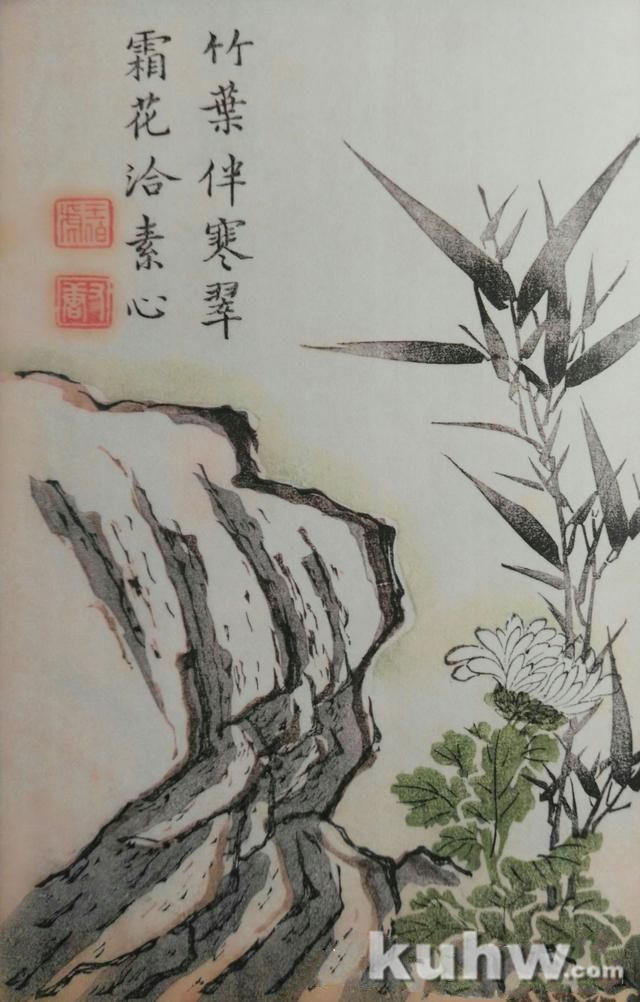 竹葉伴寒翠
霜花洽素心
kuhw.com